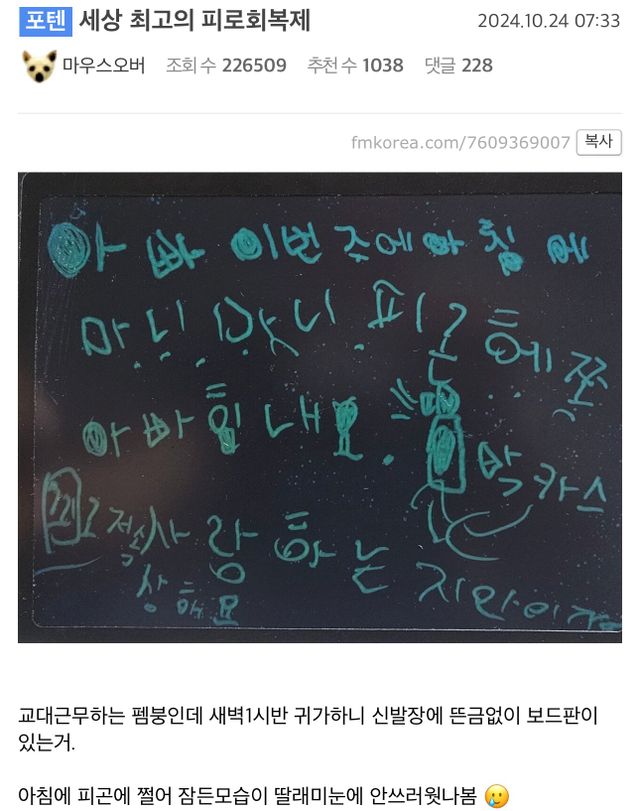 포텐 세상 최고의 피로회복제 2024.10.24 07:33
마우스오버 조회 수 226509 추천 수 1038 댓글 228
fmkorea.com/7609369007 복사
아빠 이번 주에 아침에
마니 마니 피곤해쬬
아빠 힘내요. 박카스
사랑하는 지안이가
상해요
교대근무하는 펨붕인데 새벽1시반 귀가하니 신발장에 뜬금없이 보드판이
있는거.
아침에 피곤에 쩔어 잠든모습이 딸래미눈에 안쓰러웟나봄